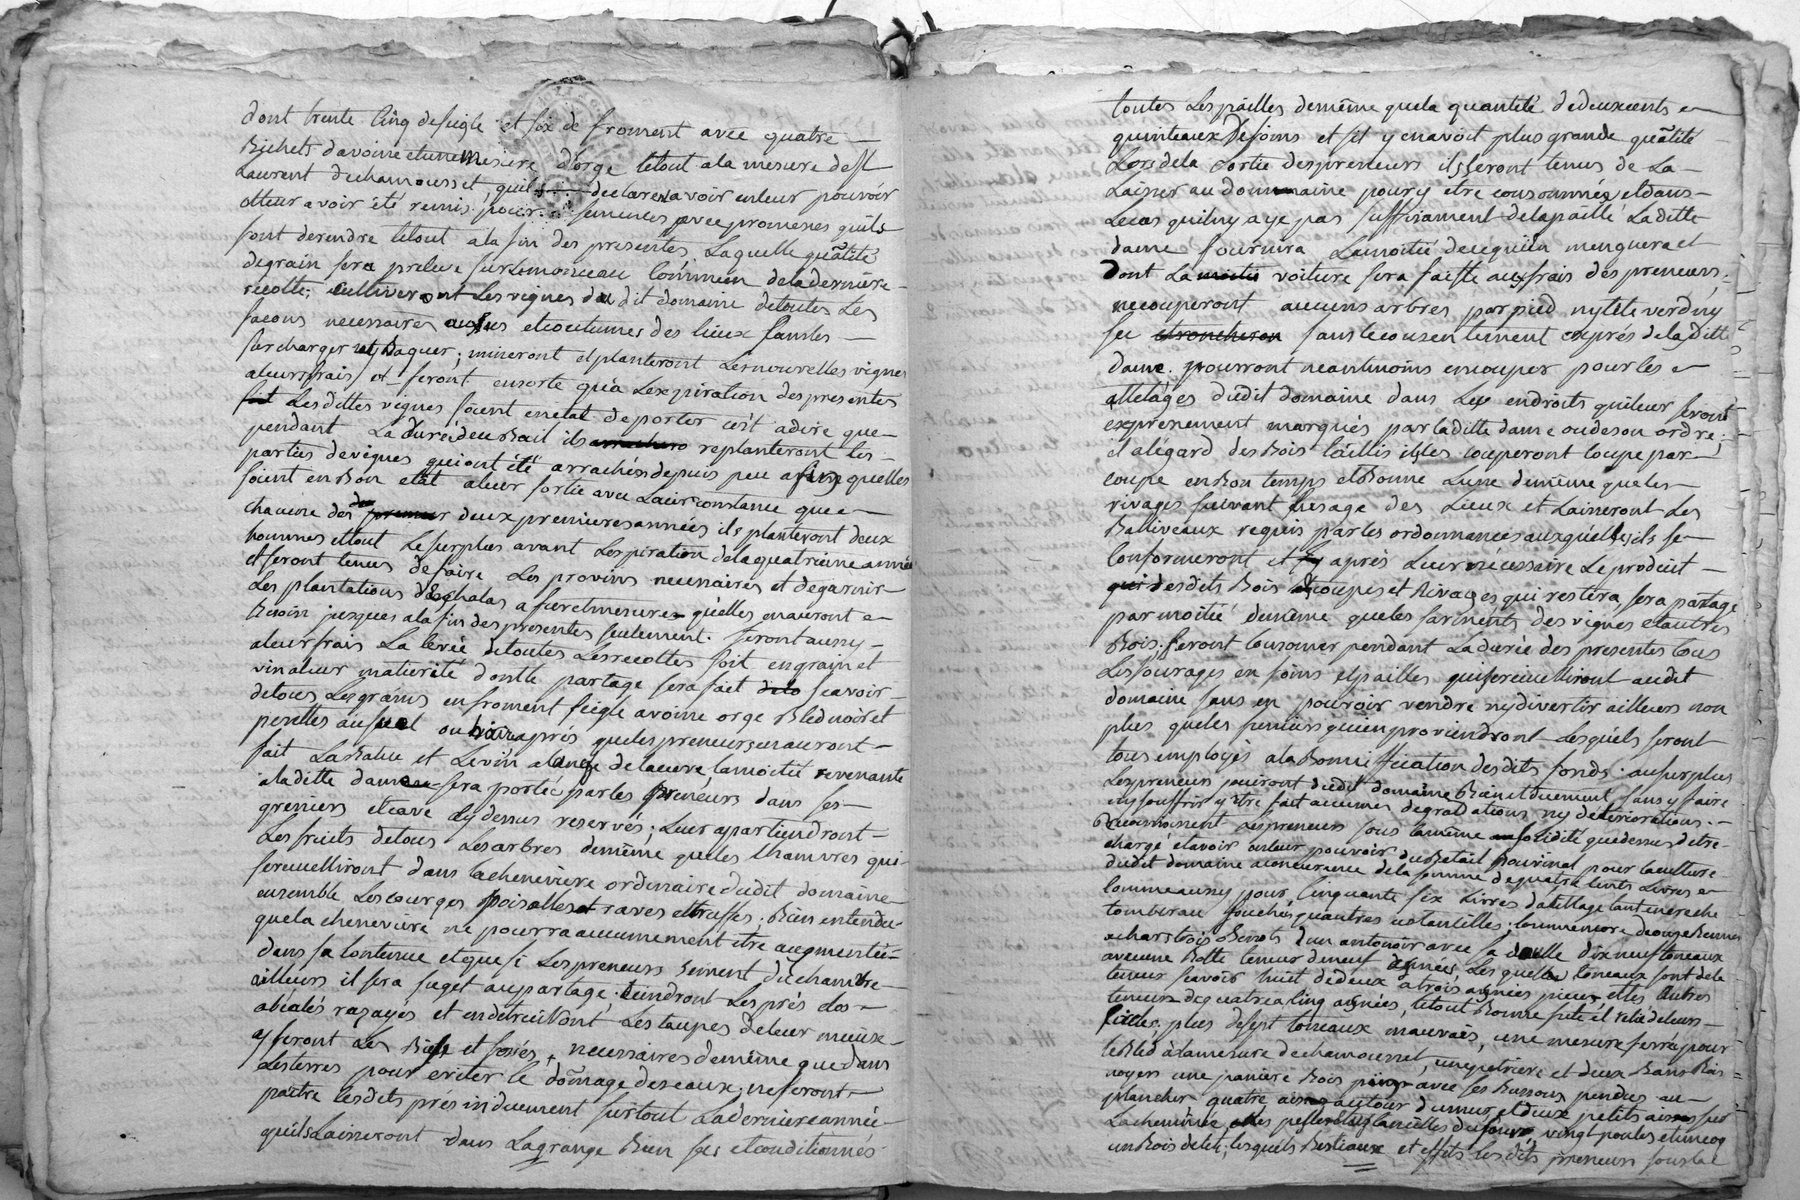 dont trente Cinq de seigle et six de froment avec quatre
Bichets d'avoine et une mesure d'orge le tout a la mesure de St
Laurent de chamousset qu'ils declarent avoir en leur pouvoir
et leur avoir été remis pour semences avec promesses qu'ils
font de rendre le tout a la fin des presentes, Laquelle quãtité
de grain sera prelevé sur Le monceau Commun de la derniere
recolte; cultiveront Les vignes du dit domaine de toutes Les
façons necessaires aux us et coutumes des lieux sans les
surcharger ny Baquer; mineront et planteront Les nouvelles vignes
a leurs frais et feront ensorte qu'a L'expiration des presentes
Les dittes vignes soient en etat de porter c'est a dire que
pendant La durée du Bail ils replanteront les
parties de vignes qui ont été arrachées depuis peu afin quelles
soient en Bon etat a leur sortie avec La circonstance que
chacune des deux premieres années ils planteront deux
hommes et tout Le surplus avant L'expiration de la quatrieme année
et seront tenus de faire Les provins necessaires et de garnir
Les plantations d'echalas a fur et mesure qu'elles en auront
Besoin jusques a la fin des presentes seulement. feront aussy
a leur frais La levée de toutes Les recoltes soit en grain et
vin a leur maturité dont le partage sera fait scavoir
de tous Les grains en froment seigle avoine orge Bled noir et
pesettes au après que les preneurs en auront
fait La Batue et Le vin a L'anse de la cuve, la moitié revenante
a la ditte dame sera portée par les preneurs dans ses
greniers et cave cy dessus reservés; Leur apartiendront
Les fruits de tous Les arbres de même que les Chanvres qui
se recueilliront dans la cheneviere ordinaire du dit domaine
ensemble Les courges pois raves et truffes; Bien entendu
que la cheneviere ne pourra aucunement être augmentée
dans sa Contenue et que si Les preneurs sement du chanvre
ailleurs il sera sujet au partage; tiendront Les prés clos
abealés rasayés et en detruiront Les taupes de leur mieux
y feront Les et fossés necessaires de même que dans
Les terres pour eviter le dõmage des eaux; ne feront
paître les dits prés induement surtout La derniere année
qu'ils Laisseront dans La grange Bien sec et conditionnés
toutes Les pailles de même que la quantité de deux cents
quinteaux De foins et s'il y en avoit plus grande quãtité
Lors de la sortie des preneurs ils seront tenus de La
Laisser au dommaine pour y être consommée, et dans
Le cas qu'il n'y aye pas suffisament de la paille La ditte
dame fournira La moitié de ce qu'il en menquera et
Dont La voiture sera faitte aux frais des preneurs;
ne couperont aucuns arbres par pied ny tête verd ny
sec sans le consentement exprés de la Ditte
Dame. pourront neantmoins en couper pour les
attelages dudit domaine dans Les endroits qui leur seront
expressement marqués par la ditte dame ou de son ordre;
et a l'égard des Bois taillis ils les couperont Coupe par
coupe en Bon temps et Bonne Lune de même que les
rivages suivant l'usage des Lieux et Laisseront Les
Balliveaux requis par les ordonnances auxquelles ils se
Conformeront et après Leur nécessaire Le produit
des dits Bois coupes et Rivages qui restera, sera partagé
par moitié de même que les sarments des vignes et autres
Bois. feront Consomer pendant La durée des presentes tous
Les fourages en foins et pailles qui se recueilliront audit
domaine sans en pouvoir vendre ny divertir ailleurs non
plus que les fumiers qui en proviendront Lesquels seront
tous employés a la Bonniffication des dits fonds: au surplus
Les preneurs jouiront dudit domaine Bien et duement sans y faire
ny souffrir y être fait aucunes degradations ny deteriorations.
Reconnoissent Les preneurs sous la même solidité que dessus d'etre
chargé et avoir en leur pouvoir du Betail Bovinal pour la culture
dudit domaine a concurance de la somme de quatre Cents Livres
Comme aussy, pour Cinquante six Livres d'atellage tant en areche
tombereau qu'autres ustancilles; Comme encore de onze Bennes
a chars trois Benots d'un antonoir avec sa douille Dix neuf toneaux
avec une Botte teneur de neuf années, Lesquels toneaux sont de la
teneur scavoir huit de deux a trois agnées pieux et les autres
teneurs de quatre a Cinq agnées, le tout Bonne fute et relié de leurs
plus de sept toneaux mauvais, une mesure ferrée pour
le Bled a la mesure de chamousset, une petriere et deux Bans Bois
noyers une paniere Bois avec ses Bassons pendus au
plancher quatre autour du mur et deux petits sur
La cheminée vingt poules et un coq
un Bois de lit; lesquels Bestiaux et effets Les dits preneurs sous la